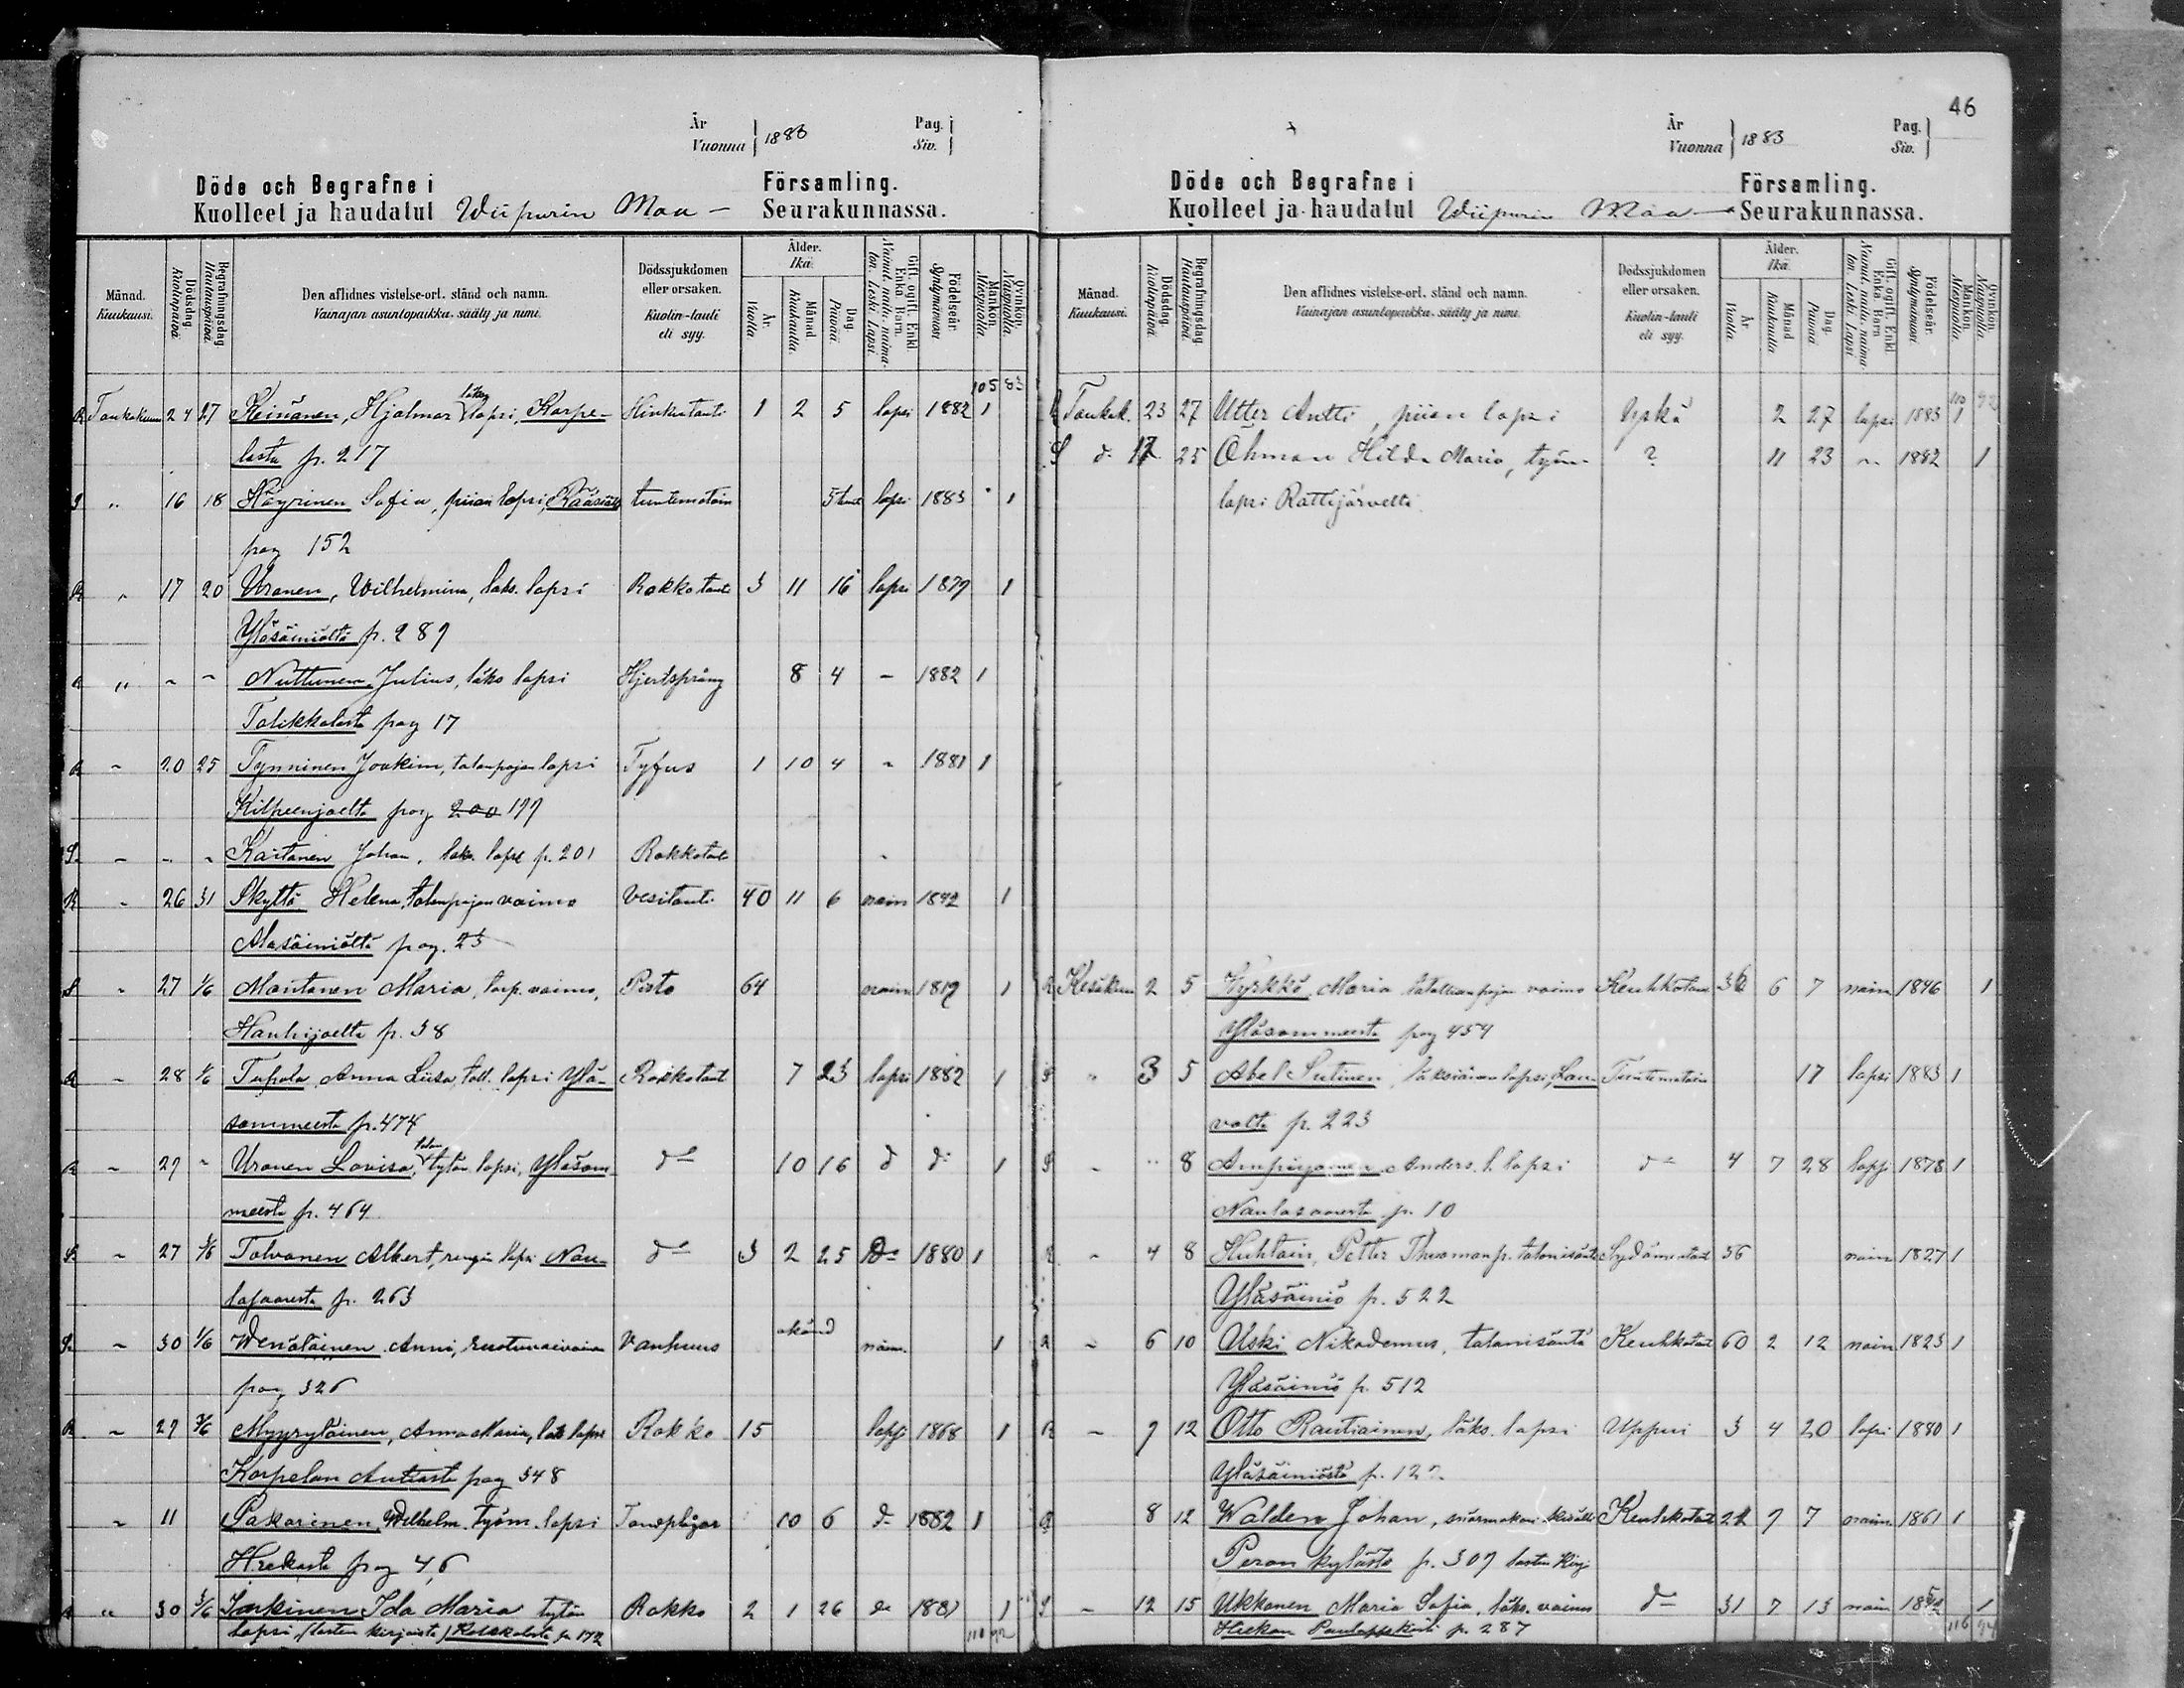 År
Vuonna } 1883
Pag.
Siv.
Döde och Begrafne i Församling.
Kuolleet ja haudatut Wiipurin Maa- Seurakunnassa.
Månad. Kuukausi.
Dödsdag. Kuolinpäivä.
Begrafningsdag Hautauspäivä.
Den aflidnes vistelse-ort, stånd och namn.
Vainajan asuntopaikka, sääty ja nimi.
Dödssjukdomen eller orsaken.
Kuolin-tauti eli syy.
Ålder. Ikä.
År. Vuotta.
Månad. Kuukautta.
Dag. Päivää.
Gift, ogift, Enkl. Enka Barn.
Nainut, naima- ton, Leski, Lapsi.
Födelseår. Syntymävuosi.
Mankön. Miespuolia.
Qvinkön. Naispuolia.
105 83
R Toukokuun 24 27 Keinänen, Hjalmar läks lapsi, Karpe- Hinkutauti 1 2 5 lapsi 1882 1
lasta p. 217
S " 16 18 Häyrinen Sofia, piian lapsi, tuntematoin 5 lapsi 1883 1
pag 152
R " 17 20 Uronen, Wilhelmina, läks. lapsi Rokkotauti 3 11 16 lapsi 1879 1
Yläsäiniöltä p. 289
R " - - Nuttunen Julius, läks lapsi Hjertsprång 8 4 - 1882 1
Talikkalasta pag 17
R - 20 25 Tynninen Joakim, talonpojan lapsi Tyfus 1 10 4 - 1881 1
Kilpeenjoelta pag 200 199
S - - - Kaitanen Johan, läks. lapsi p. 201 Rokkotauti -
R - 26 31 Skyttä Helena, talonpojan vaimo Vesitauti 40 11 6 nain 1842 1
Alasäiniöltä pag. 23
S - 27 1/6 Mantanen Maria, torp. vaimo, Pisto 64 nain 1819 1
Hanhijoelta p. 38
R - 28 1/6 Tupala Anna Liisa, tall. lapsi Ylä- Rokkotaut 7 23 lapsi 1882 1
sommeesta p. 474
R - 29 - Uronen Lovisa, talon tytön lapsi, Yläsom- do 10 16 d do 1
meesta p. 464
R - 27 3/6 Tolvanen Albert, rengin lapsi Nau- do 3 2 25 Do 1880 1
lasaaresta p. 263
S - 30 1/6 Wenäläinen Anni, ruotuvaivainen Vanhuus okänd nain. 1
pag 326
R - 29 3/6 Myyryläinen, Anna Maria, läks lapsi Rokko 15 lapsi 1868 1
Karpelan Autiasta pag 348
- 11 Pakarinen, Wilhelm, työm. lapsi Tandplågor 10 6 do 1882 1
pag 46
R " 30 3/6 Sarkinen Ida Maria tytön Rokko 2 1 26 do 1881 1
lapsi, (lasten kirjasta) p. 172
110 92
46
År
Vuonna } 1883
Pag.
Siv.
Döde och Begrafne i Församling.
Kuolleet ja haudatut Wiipurin Maa- Seurakunnassa.
Månad. Kuukausi.
Dödsdag. Kuolinpäivä.
Begrafningsdag Hautauspäivä.
Den aflidnes vistelse-ort, stånd och namn.
Vainajan asuntopaikka, sääty ja nimi.
Dödssjukdomen eller orsaken.
Kuolin-tauti eli syy.
Ålder. Ikä.
År. Vuotta.
Månad Kuukautta.
Dag. Päivää.
Gift, ogift, Enkl. Enka Barn
Nainut, naima- ton, Leski, Lapsi.
Födelseår. Syntymävuosi.
Mankön. Miespuolia.
Qvinkön. Naispuolia.
110 92
R Toukok. 23 27 Utter Antti, piian lapsi Yskä 2 27 lapsi 1883 1
S do 17 25 Öhman Hilda Maria, työm. ? 11 23 - 1882 1
lapsi Rättijärveltä
R Kesäkuu 2 5 Hyrkkö, Maria vaimo Keuhkotaut 36 6 7 nain 1846 1
Yläsommeesta pag 454
S " 3 5 Abel Sutinen, läksiäimen lapsi, Lau- Tuntematoin 17 lapsi 1883 1
valta p. 223
S - " 8 Anders. l. lapsi do 4 7 28 lapsi 1878 1
Naulasaaresta p. 10
R - 4 8 Huhtain, Petter Thuomanp. talonisäntä Sydämentaut 56 nain 1827 1
Yläsäiniö p. 522
R - 6 10 Uski Nikodemus, talonisäntä Keuhkotaut 60 2 12 nain 1823 1
Yläsäiniö p. 512
R - 9 12 Otto Rautiainen, läks. lapsi Uppui 3 4 20 lapsi 1880 1
Yläsäiniöstä p. 127
R 8 12 Walden Johan, Keuhkotaut 22 9 7 nain 1861 1
Peron kylästä p. 309 lasten Kirj.
S - 12 15 Ukkonen Maria Sofia, läks. vaimo do 31 7 13 nain 1852 1
p. 287
116 94